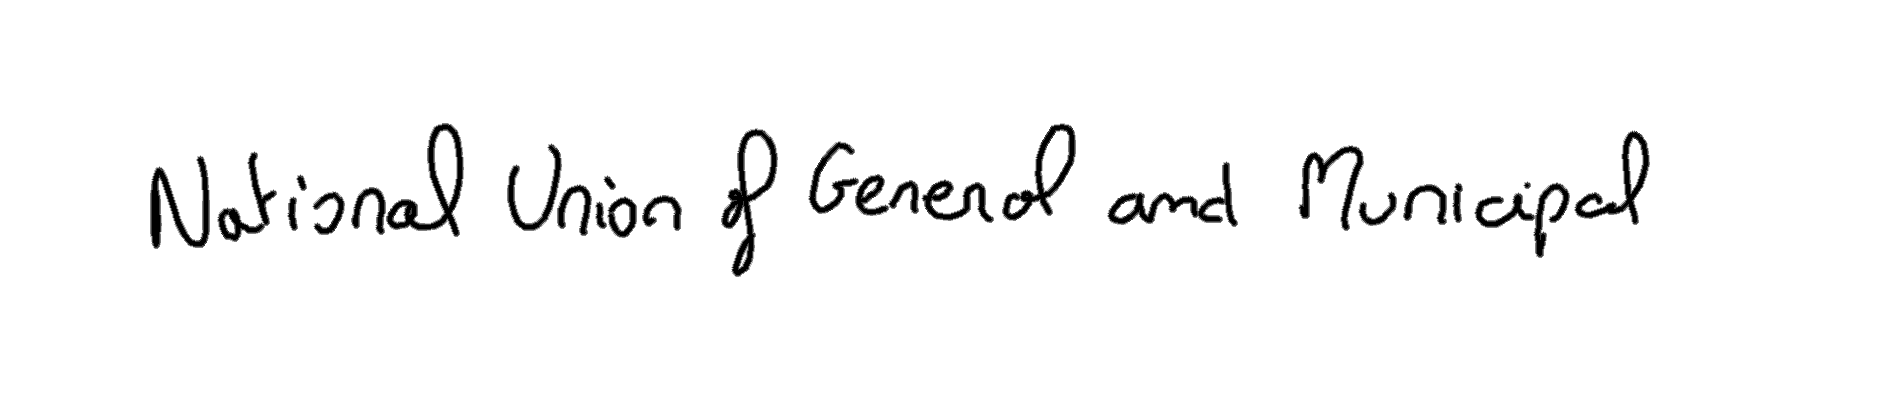 National Union of General and Municipal